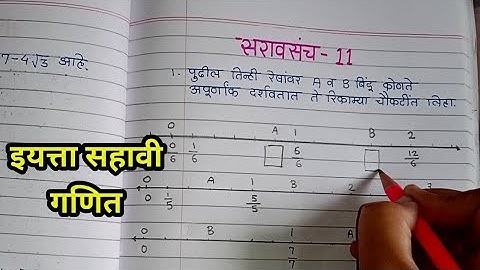 सरावसंच - 11
7-4√3 आहे.
1. पुढील तिन्ही रेषांवर A व B बिंदू कोणते
अपूर्णांक दर्शवतात ते रिकाम्या चौकटींत लिहा.
0 A 1 B 2
0/6 1/6 6/6 12/6
इयत्ता सहावी
गणित
0 A 1 B 2 3
0 1/5 5/5
0 B 1 A
0 7/7